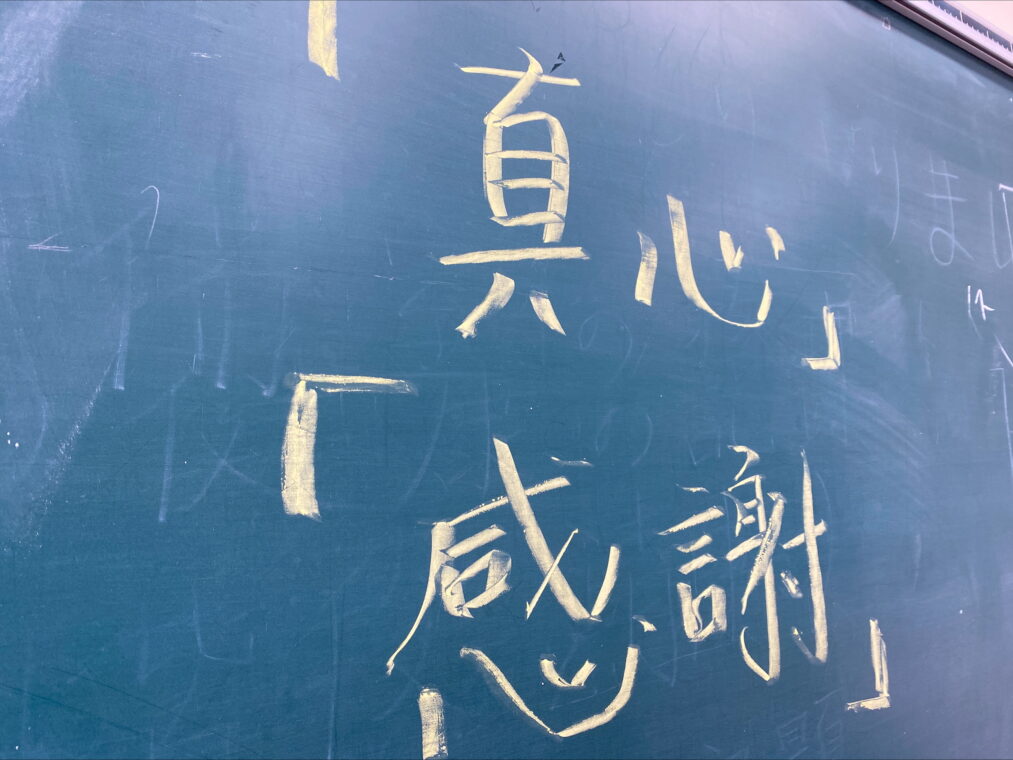 「真心」
「感謝」